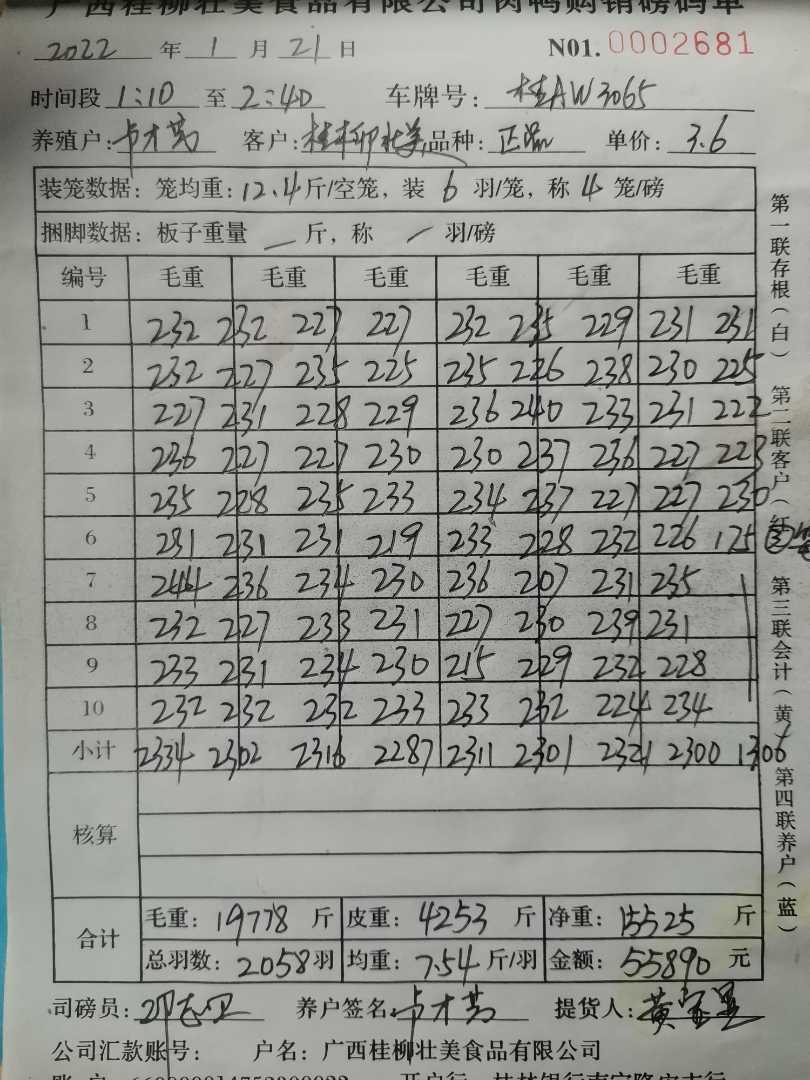 广西桂柳壮美食品有限公司肉鸭购销磅码单
2022 年 1 月 21 日 N01. 0002681
时间段 1:10 至 2:40 车牌号: 桂AW3065
养殖户: 客户: 桂柳壮美 品种: 正品 单价: 3.6
装笼数据: 笼均重: 12.4 斤/空笼, 装 6 羽/笼, 称 4 笼/磅
捆脚数据: 板子重量 — 斤, 称 — 羽/磅
编号 毛重 毛重 毛重 毛重 毛重 毛重
1 232 232 227 227 232 235 229 231 231
2 232 227 235 225 235 226 238 230 225
3 227 231 228 229 236 240 233 231 222
4 236 227 227 230 230 237 236 227 223
5 235 228 235 233 234 237 227 227 230
6 231 231 231 219 233 228 232 226 175 ③笼
7 244 236 234 230 236 207 231 235
8 232 227 233 231 227 230 239 231
9 233 231 234 230 215 229 232 228
10 232 232 232 233 233 232 224 234
小计 2334 2302 2316 2287 2311 2301 2321 2300 1306
核算
合计 毛重: 19778 斤 皮重: 4253 斤 净重: 15525 斤
总羽数: 2058 羽 均重: 7.54 斤/羽 金额: 55890 元
司磅员: 养户签名: 提货人:
公司汇款账号: 户名: 广西桂柳壮美食品有限公司
第一联存根(白) 第二联客户(红) 第三联会计(黄) 第四联养户(蓝)